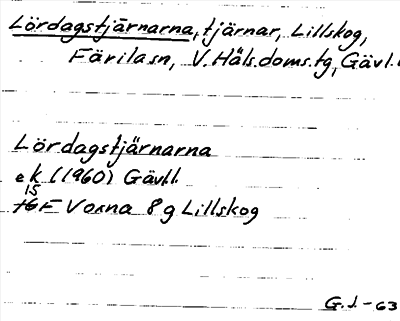 Lördagstjärnarna, tjärnar, Lillskog,
Färila sn, V. Häls. doms. tg, Gävl.
Lördagstjärnarna
ek (1960) Gävl.l.
15
16F Voxna 8 g Lillskog
G. J. - 63